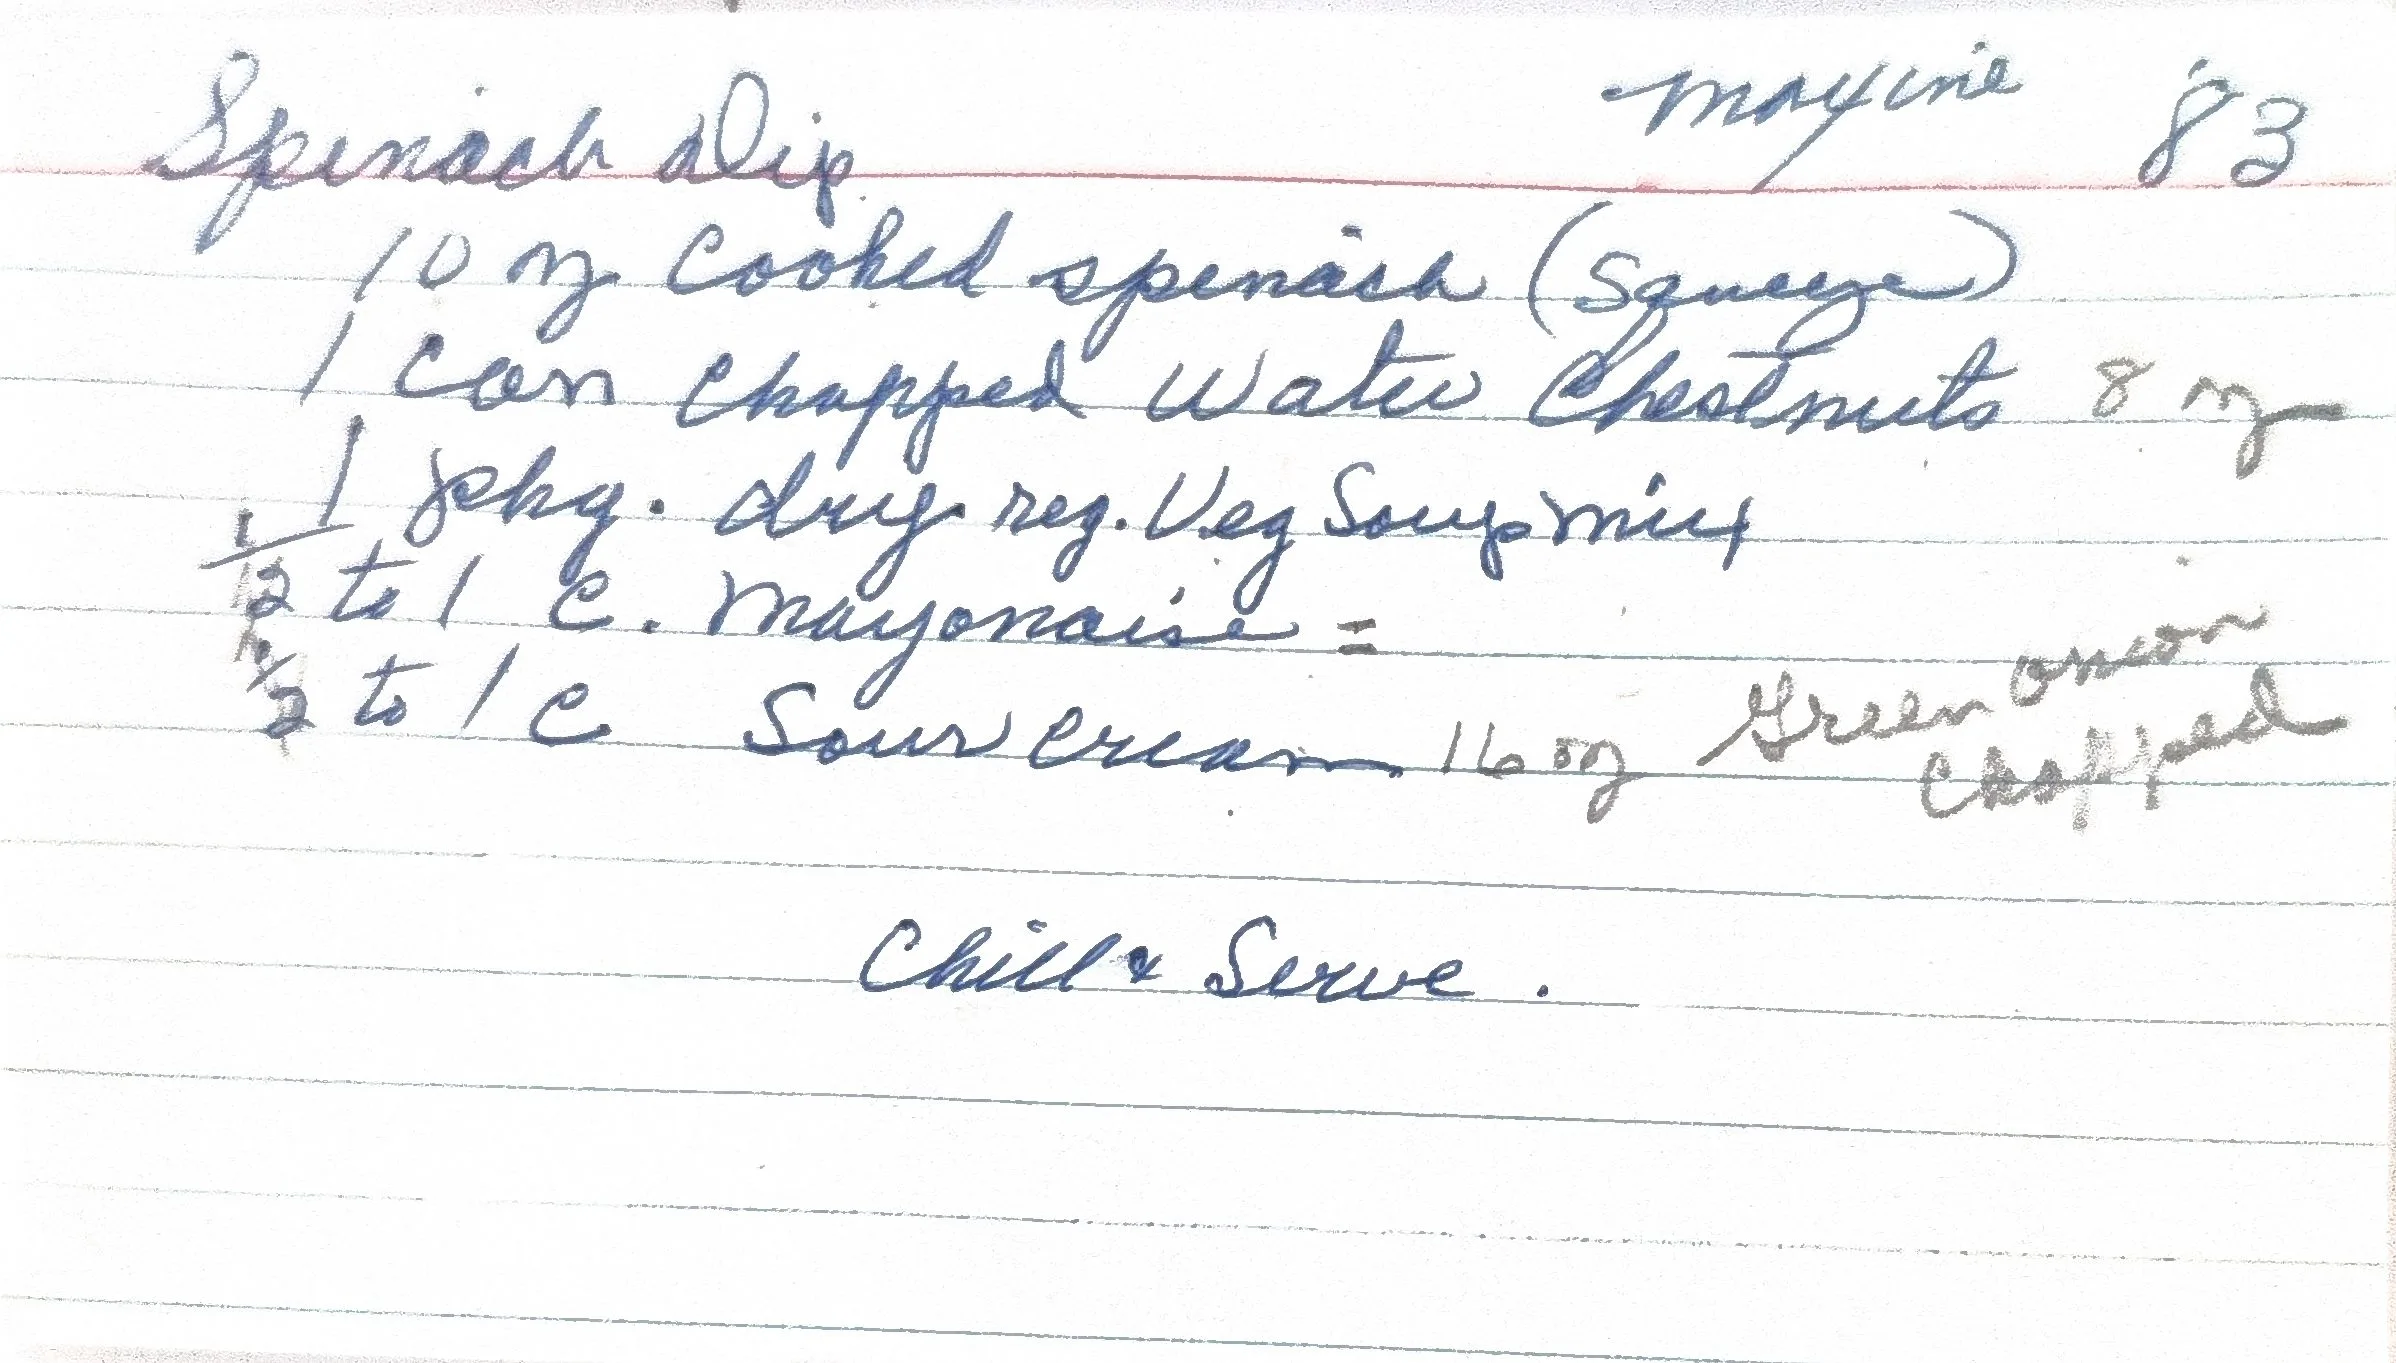 Spinach Dip Maxine 83
10 oz Cooked spinach (Squeeze)
1 can chopped Water Chestnuts 8 oz
1 pkg. dry reg. Veg Soup mix
1/2 to 1 C. Mayonaise =
1/2 to 1 C Sour cream 16 oz Green onion
chopped
Chill & Serve.